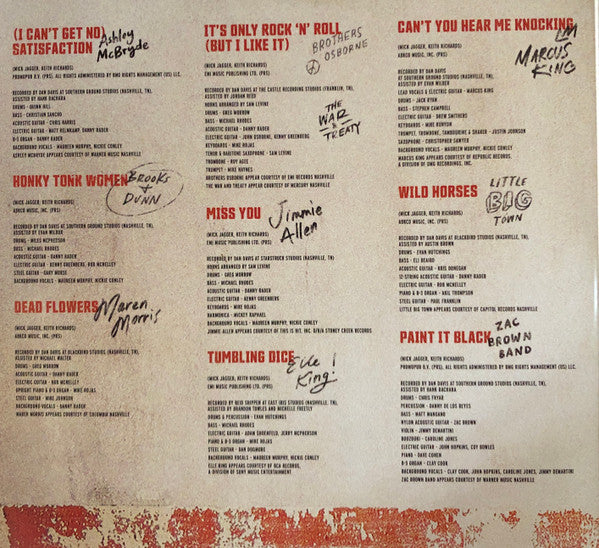 (I CAN'T GET NO)
SATISFACTION
Ashley
McBryde
(MICK JAGGER, KEITH RICHARDS)
PROMOPUB B.V. (PRS) ALL RIGHTS ADMINISTERED BY BMG RIGHTS MANAGEMENT (US) LLC.
RECORDED BY DAN DAVIS AT SOUTHERN GROUND STUDIOS (NASHVILLE, TN),
ASSISTED BY HANK BACHARA
DRUMS - QUINN HILL
BASS - CHRISTIAN SANCHO
ACOUSTIC GUITAR - CHRIS HARRIS
ELECTRIC GUITAR - MATT HELMKAMP, DANNY RADER
B-3 ORGAN - DANNY RADER
BACKGROUND VOCALS - MAUREEN MURPHY, NICKIE CONLEY
ASHLEY MCBRYDE APPEARS COURTESY OF WARNER MUSIC NASHVILLE
HONKY TONK WOMEN
BROOKS
+
DUNN
(MICK JAGGER, KEITH RICHARDS)
ABKCO MUSIC, INC. (PRS)
RECORDED BY DAN DAVIS AT SOUTHERN GROUND STUDIOS (NASHVILLE, TN),
ASSISTED BY EVAN WILBER
DRUMS - MILES MCPHERSON
BASS - MICHAEL RHODES
ACOUSTIC GUITAR - DANNY RADER
ELECTRIC GUITAR - KENNY GREENBERG, ROB MCNELLEY
KEYBOARDS - MIKE ROJAS
STEEL GUITAR - GARY MORSE
BACKGROUND VOCALS - MAUREEN MURPHY, NICKIE CONLEY
DEAD FLOWERS
Maren
Morris
(MICK JAGGER, KEITH RICHARDS)
ABKCO MUSIC, INC. (PRS)
RECORDED BY DAN DAVIS AT BLACKBIRD STUDIOS (NASHVILLE, TN),
ASSISTED BY MICHAEL WALTER
DRUMS - GREG MORROW
ACOUSTIC GUITAR - DANNY RADER
ELECTRIC GUITAR - ROB MCNELLEY
UPRIGHT PIANO & B-3 ORGAN - MIKE ROJAS
STEEL GUITAR - MIKE JOHNSON
BACKGROUND VOCALS - DANNY RADER
MAREN MORRIS APPEARS COURTESY OF COLUMBIA NASHVILLE
IT'S ONLY ROCK 'N' ROLL
(BUT I LIKE IT)
BROTHERS
OSBORNE
(MICK JAGGER, KEITH RICHARDS)
EMI MUSIC PUBLISHING LTD. (PRS)
THE
WAR
&
TREATY
RECORDED BY DAN DAVIS AT THE CASTLE RECORDING STUDIOS (FRANKLIN, TN),
ASSISTED BY JORDAN REED
HORNS ARRANGED BY SAM LEVINE
DRUMS - GREG MORROW
BASS - MICHAEL RHODES
ACOUSTIC GUITAR - DANNY RADER
ELECTRIC GUITAR - JOHN OSBORNE, KENNY GREENBERG
KEYBOARDS - MIKE ROJAS
TENOR & BARITONE SAXOPHONE - SAM LEVINE
TROMBONE - ROY AGEE
TRUMPET - MIKE HAYNES
BROTHERS OSBORNE APPEAR COURTESY OF EMI RECORDS NASHVILLE
THE WAR AND TREATY APPEAR COURTESY OF MERCURY NASHVILLE
MISS YOU
Jimmie
Allen
(MICK JAGGER, KEITH RICHARDS)
EMI MUSIC PUBLISHING LTD. (PRS)
RECORDED BY DAN DAVIS AT STARSTRUCK STUDIOS (NASHVILLE, TN)
HORNS ARRANGED BY SAM LEVINE
DRUMS - GREG MORROW
BASS - MICHAEL RHODES
ACOUSTIC GUITAR - DANNY RADER
ELECTRIC GUITAR - KENNY GREENBERG
KEYBOARDS - MIKE ROJAS
HARMONICA - MICKEY RAPHAEL
BACKGROUND VOCALS - MAUREEN MURPHY, NICKIE CONLEY
JIMMIE ALLEN APPEARS COURTESY OF THIS IS HIT, INC. D/B/A STONEY CREEK RECORDS
TUMBLING DICE
Elle
King!
(MICK JAGGER, KEITH RICHARDS)
EMI MUSIC PUBLISHING LTD. (PRS)
RECORDED BY REID SHIPPEN AT EAST IRIS STUDIOS (NASHVILLE, TN),
ASSISTED BY BRANDON TOWLES AND MICHELLE FREETLY
DRUMS & PERCUSSION - EVAN HUTCHINGS
BASS - MICHAEL RHODES
ELECTRIC GUITAR - ADAM SHOENFELD, JERRY MCPHERSON
PIANO & B-3 ORGAN - MIKE ROJAS
STEEL GUITAR - DAN DUGMORE
BACKGROUND VOCALS - MAUREEN MURPHY, NICKIE CONLEY
ELLE KING APPEARS COURTESY OF RCA RECORDS,
A DIVISION OF SONY MUSIC ENTERTAINMENT
CAN'T YOU HEAR ME KNOCKING
MARCUS
KING
(MICK JAGGER, KEITH RICHARDS)
ABKCO MUSIC, INC. (PRS)
RECORDED BY DAN DAVIS
AT SOUTHERN GROUND STUDIOS (NASHVILLE, TN),
ASSISTED BY EVAN WILBER
LEAD VOCALS & ELECTRIC GUITAR - MARCUS KING
DRUMS - JACK RYAN
BASS - STEPHEN CAMPBELL
ELECTRIC GUITAR - DREW SMITHERS
KEYBOARDS - MIKE RUNYON
TRUMPET, TROMBONE, TAMBOURINE & SHAKER - JUSTIN JOHNSON
SAXOPHONE - CHRISTOPHER SPIES
BACKGROUND VOCALS - MAUREEN MURPHY, NICKIE CONLEY
MARCUS KING APPEARS COURTESY OF REPUBLIC RECORDS,
A DIVISION OF UMG RECORDINGS, INC.
WILD HORSES
LITTLE
BIG
TOWN
(MICK JAGGER, KEITH RICHARDS)
ABKCO MUSIC, INC. (PRS)
RECORDED BY DAN DAVIS AT BLACKBIRD STUDIOS (NASHVILLE, TN),
ASSISTED BY AUSTIN BROWN
DRUMS - EVAN HUTCHINGS
BASS - ELI BEAIRD
ACOUSTIC GUITAR - KRIS DONEGAN
12-STRING ACOUSTIC GUITAR - DANNY RADER
ELECTRIC GUITAR - ROB MCNELLEY
PIANO & B-3 ORGAN - AKIL THOMPSON
STEEL GUITAR - PAUL FRANKLIN
LITTLE BIG TOWN APPEARS COURTESY OF CAPITOL RECORDS NASHVILLE
PAINT IT BLACK
ZAC
BROWN
BAND
(MICK JAGGER, KEITH RICHARDS)
PROMOPUB B.V. (PRS). ALL RIGHTS ADMINISTERED BY BMG RIGHTS MANAGEMENT (US) LLC.
RECORDED BY DAN DAVIS AT SOUTHERN GROUND STUDIOS (NASHVILLE, TN),
ASSISTED BY HANK BACHARA
DRUMS - CHRIS FRYAR
PERCUSSION - DANNY DE LOS REYES
BASS - MATT MANGANO
NYLON ACOUSTIC GUITAR - ZAC BROWN
VIOLIN - JIMMY DEMARTINI
BOUZOUKI - CAROLINE JONES
ELECTRIC GUITAR - JOHN HOPKINS, COY BOWLES
PIANO - DAVE COHEN
B-3 ORGAN - CLAY COOK
BACKGROUND VOCALS - CLAY COOK, JOHN HOPKINS, CAROLINE JONES, JIMMY DEMARTINI
ZAC BROWN BAND APPEARS COURTESY OF WARNER MUSIC NASHVILLE